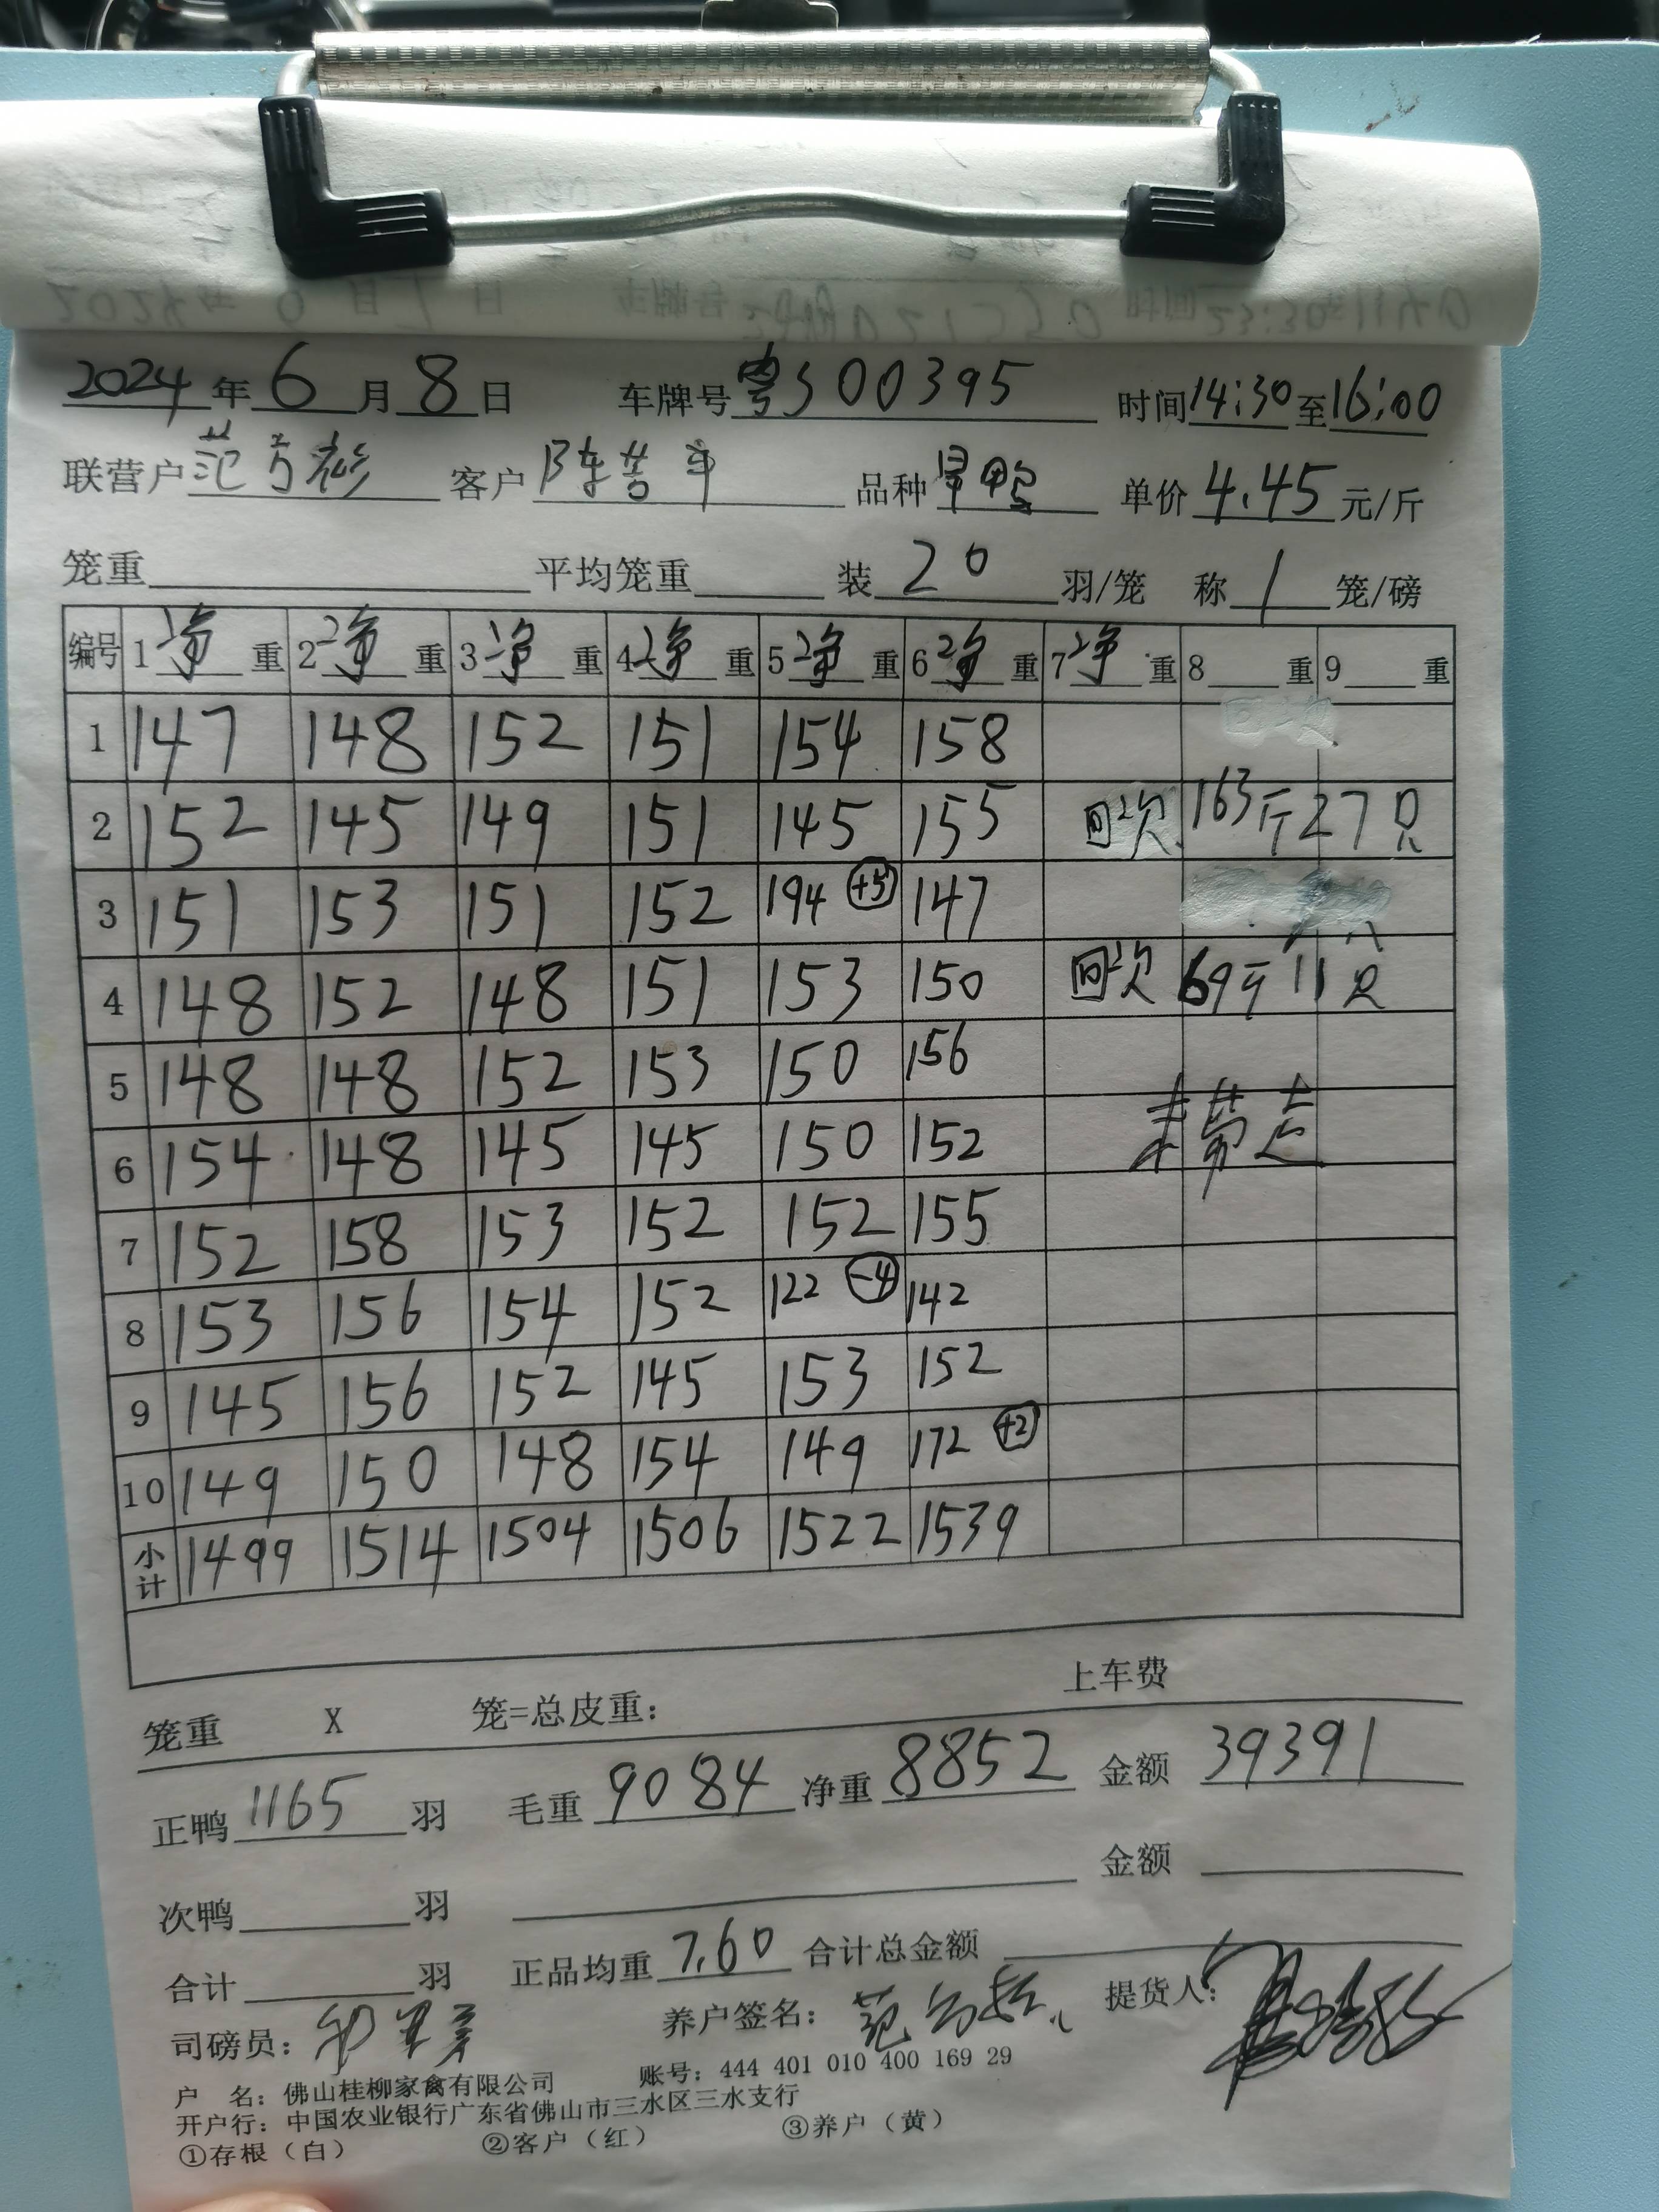 2024年6月8日 车牌号粤S00395 时间14:30至16:00
联营户范 客户陈 品种旱鸭 单价4.45元/斤
笼重 平均笼重 装20羽/笼 称1笼/磅
编号 1净重 2净重 3净重 4净重 5净重 6净重 7净重 8重 9重
1 147 148 152 151 154 158
2 152 145 149 151 145 155 回次 163斤27只
3 151 153 151 152 194 +5 147
4 148 152 148 151 153 150 回次 69斤11只
5 148 148 152 153 150 156
6 154 148 145 145 150 152 未带走
7 152 158 153 152 152 155
8 153 156 154 152 122 -4 142
9 145 156 152 145 153 152
10 149 150 148 154 149 172 +2
小计 1499 1514 1504 1506 1522 1539
上车费
笼重 X 笼=总皮重：
正鸭1165羽 毛重9084 净重8852 金额39391
次鸭 羽 金额
合计 羽 正品均重7.60 合计总金额
司磅员： 养户签名：范 提货人：
户 名：佛山桂柳家禽有限公司 账号：444 401 010 400 169 29
开户行：中国农业银行广东省佛山市三水区三水支行
①存根（白） ②客户（红） ③养户（黄）